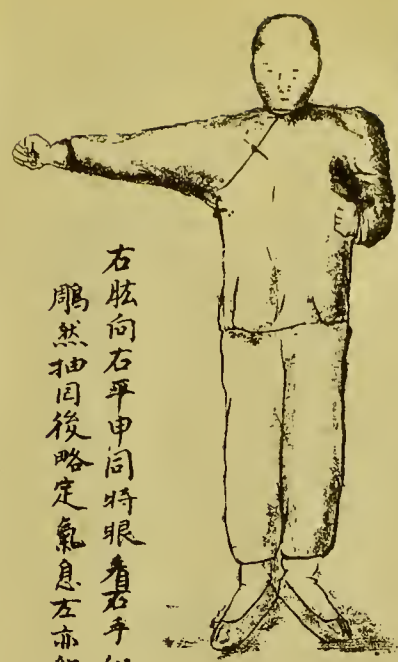 右肱向右平申同時眼看右手
鵰然抽回後略定氣息左亦